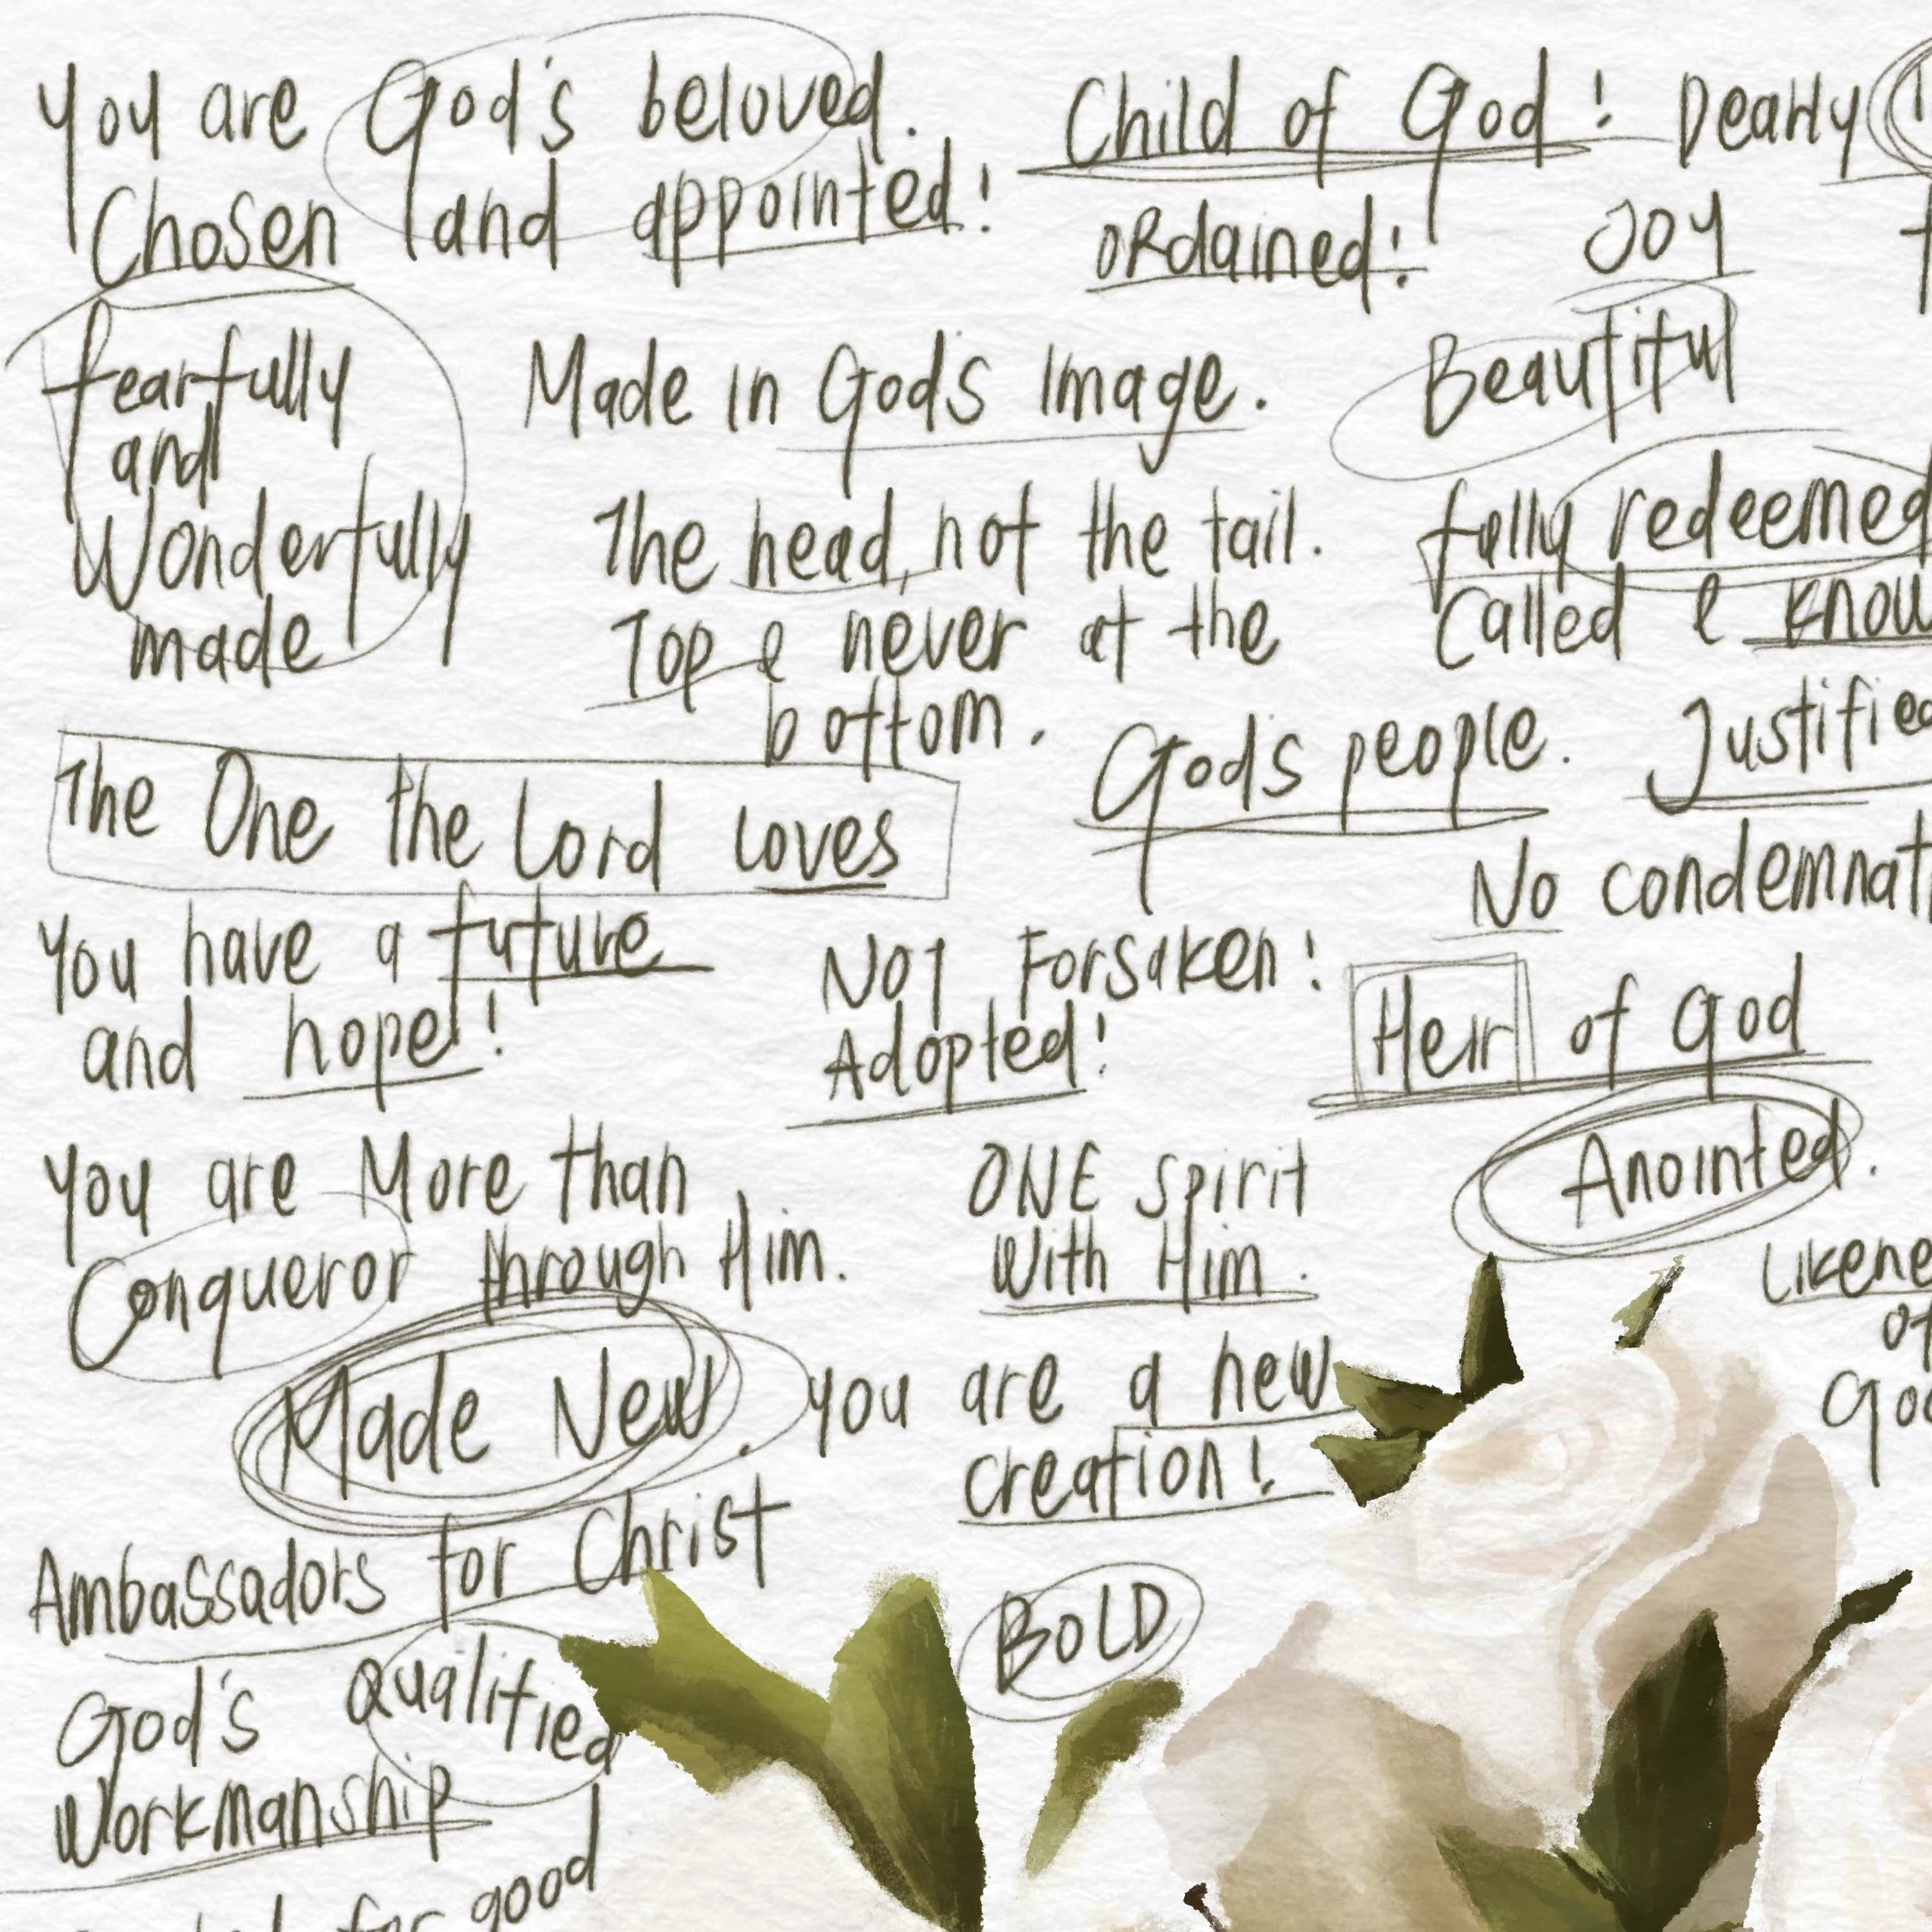 You are God's beloved.
Chosen and appointed!
Child of God!
Dearly
ORdained!
JOY
fearfully
and
Wonderfully
made
Made in God's Image.
Beautiful
The head, not the tail.
Top & never at the
bottom.
fully redeemed
Called &
God's people.
The One the Lord Loves
No
You have a future
and hope!
Not Forsaken!
Adopted!
Heir of God
You are More than
Conqueror through Him.
ONE Spirit
With Him.
Anointed.
of
Made New.
You are a new
creation!
Ambassadors for Christ
BOLD
God's
Workmanship
Qualified
for good